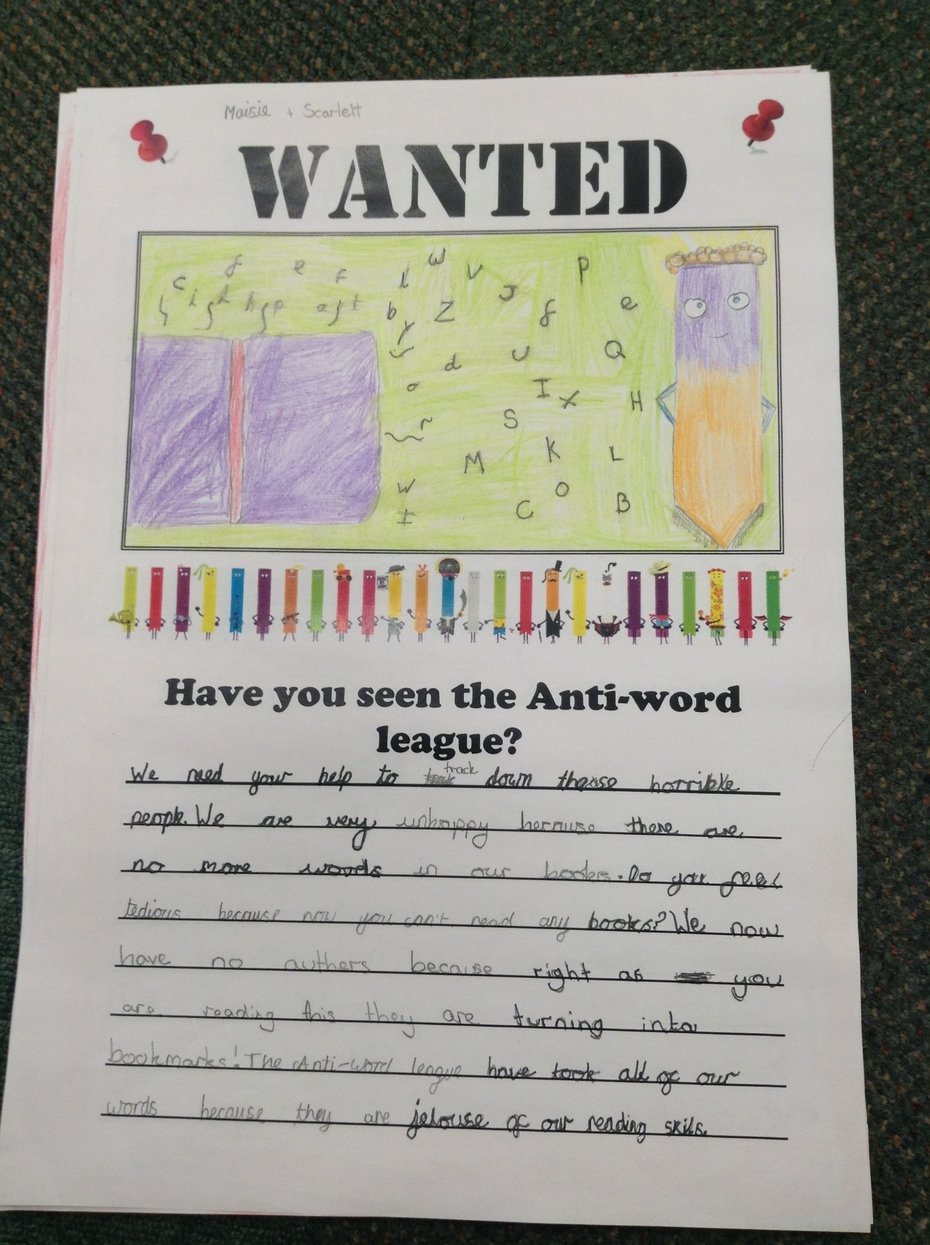 Maisie + Scarlett
WANTED
c f e f k w v p
h i g h h g p a g t b Z J f e
y
d U Q
a I X H
S
r
M K L
w O
I C B
Have you seen the Anti-word
league?
We need your help to track down these horrible
people. We are very unhappy because there are
no more words in our books. Do you feel
tedious because now you can't read any books? We now
have no authers because right as you
are reading this they are turning into
bookmarks! The Anti-word league have took all of our
words because they are jelouse of our reading skils.